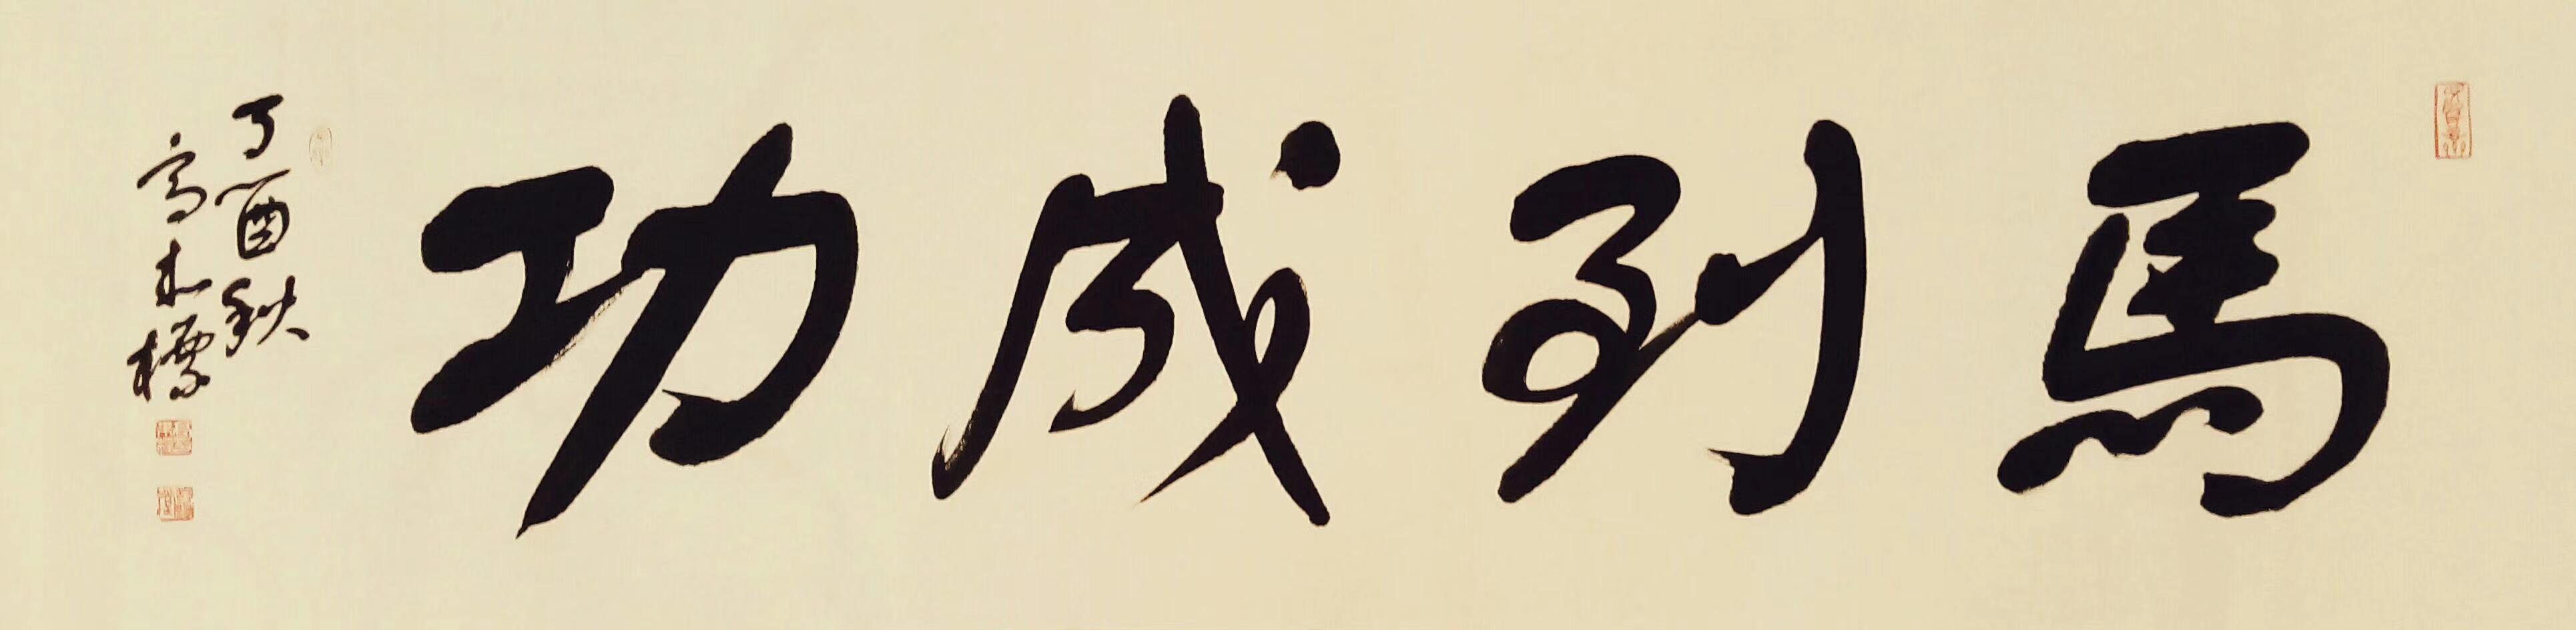 馬到成功
丁酉秋
高木標